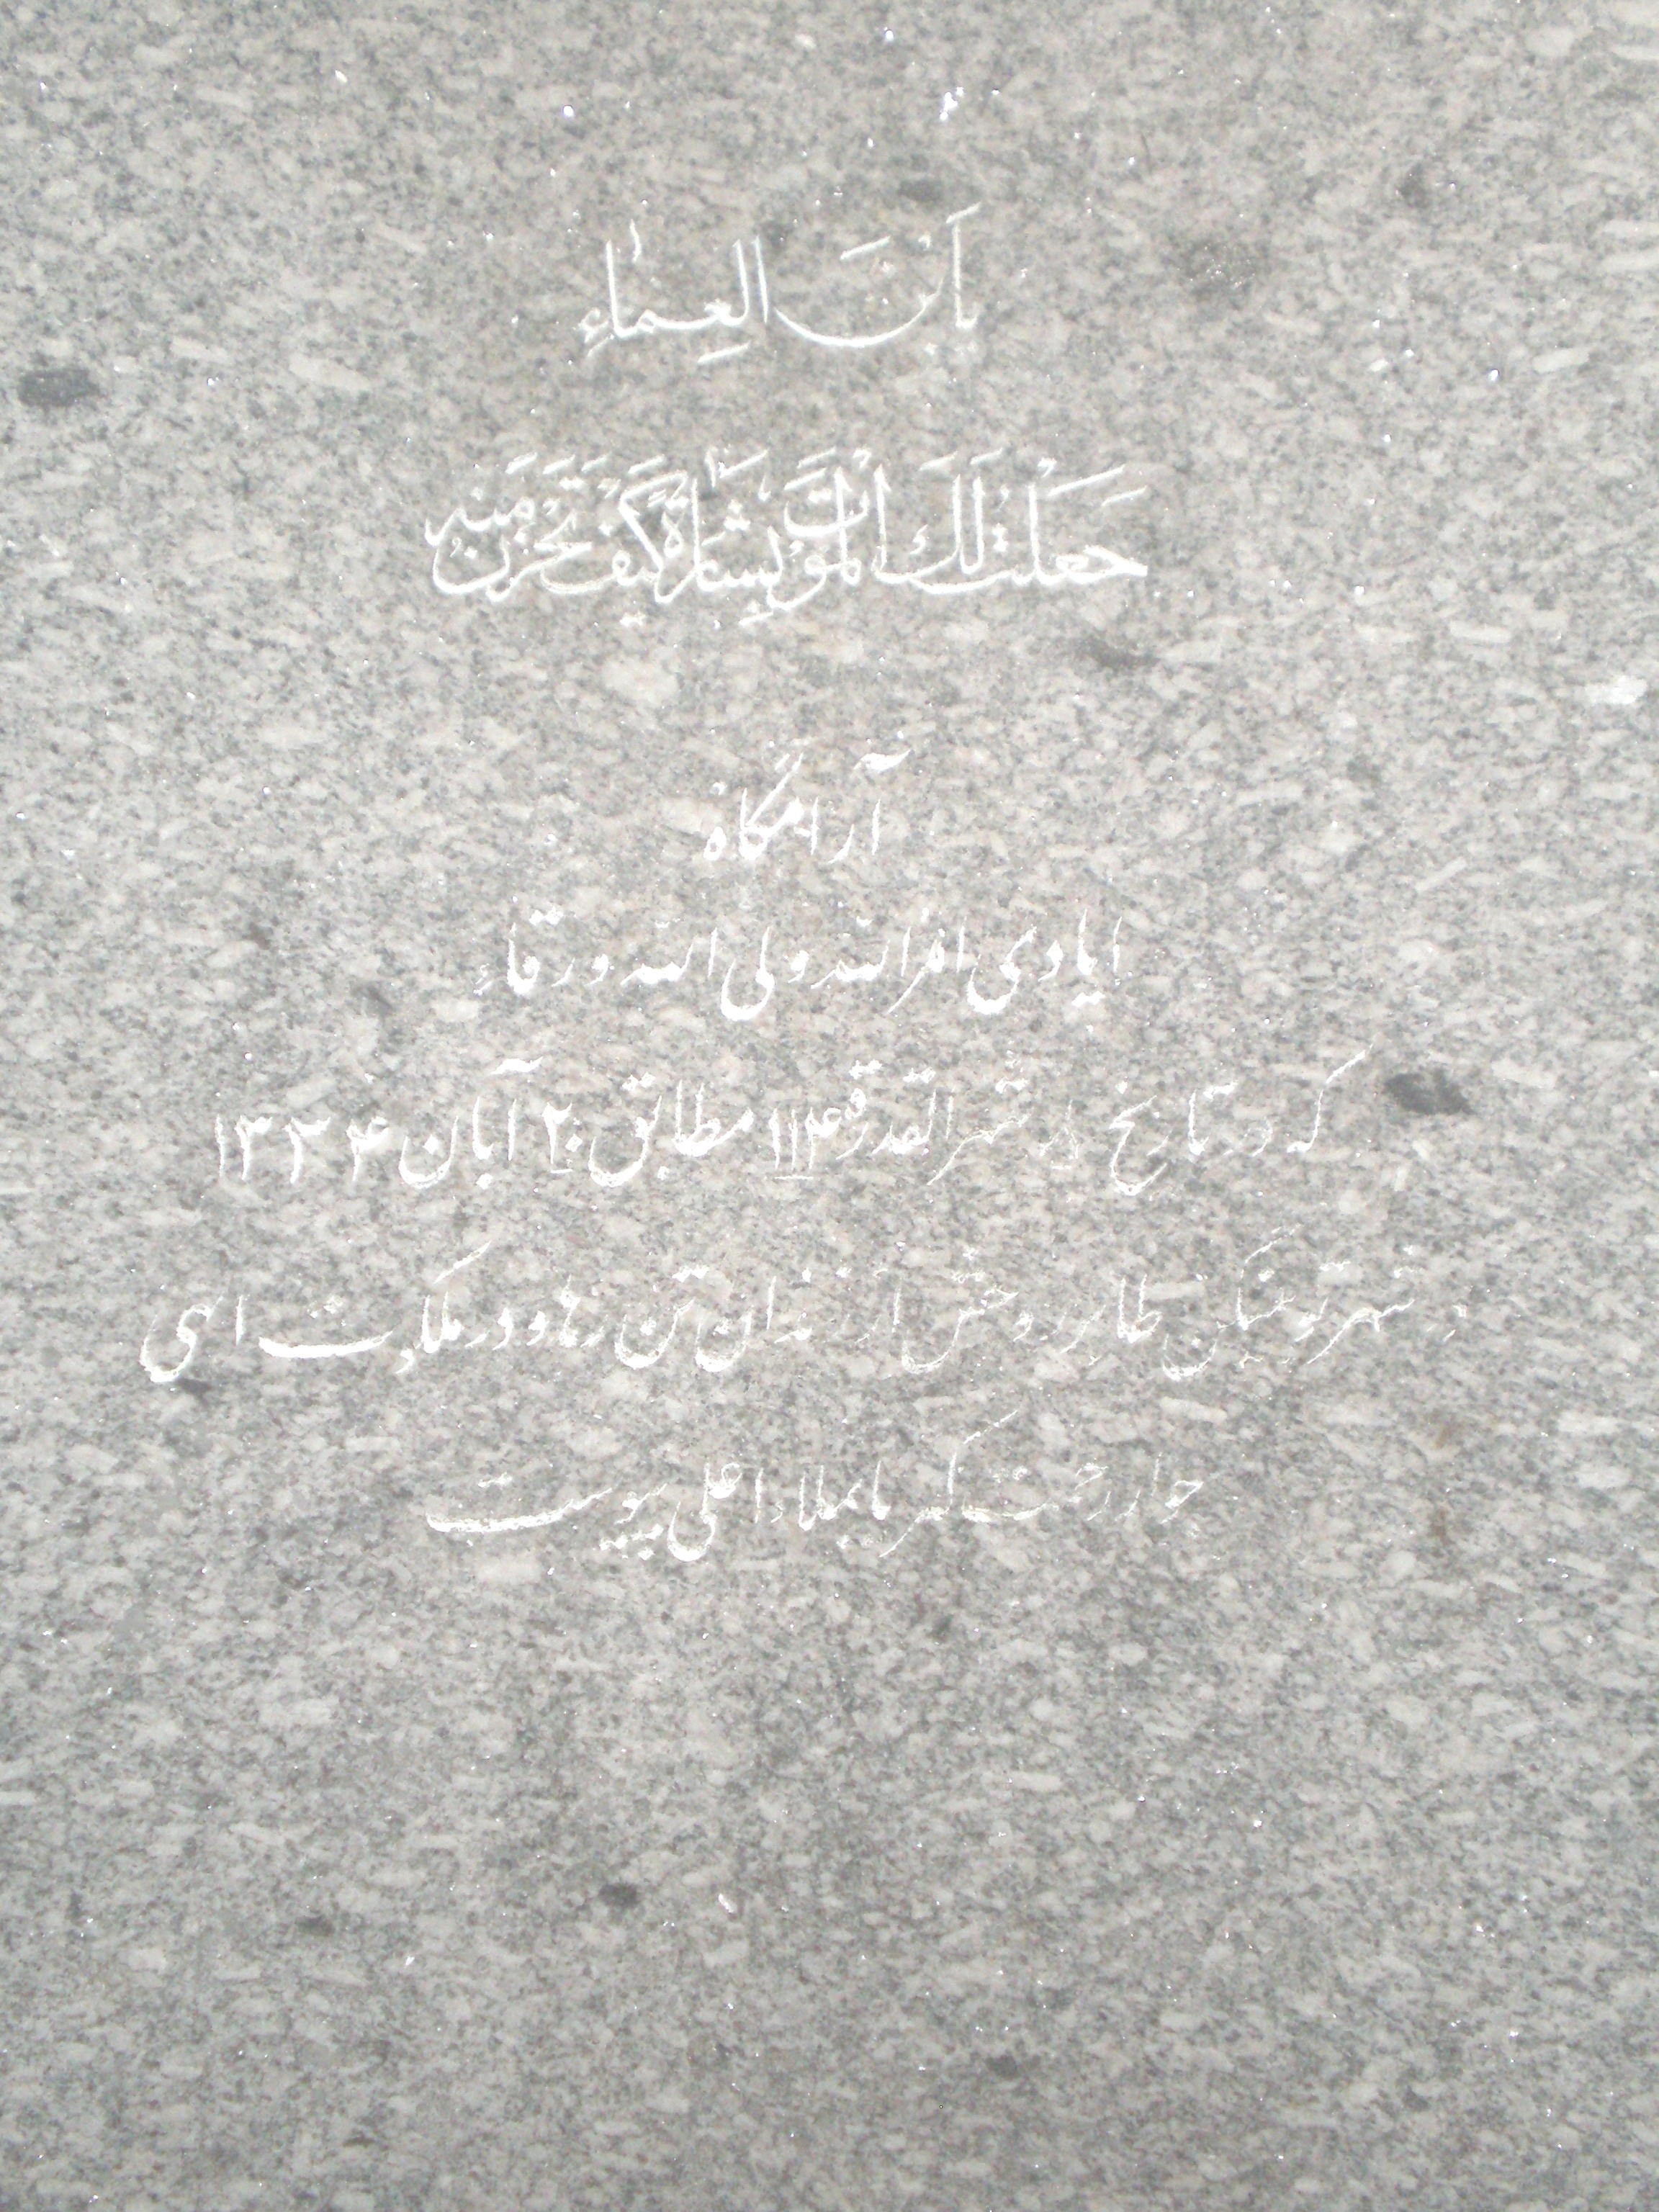 يَابْنَ العِماءِ
جَعَلْتُ لَكَ الْمَوْتَ بِشَارَةً كَيْفَ تَحْزَنُ مِنْهُ
آرامگاه
ایادی امرالله ولی الله ورقاء
که در تاریخ ۸ شهر القدرة ۱۱۴ مطابق ۲۰ آبان ۱۳۳۴
در شهر توبینگن طایر روحش از زندان تن رها و در ملکوت الهی
جوار رحمت کبریا بملاء اعلی پیوست